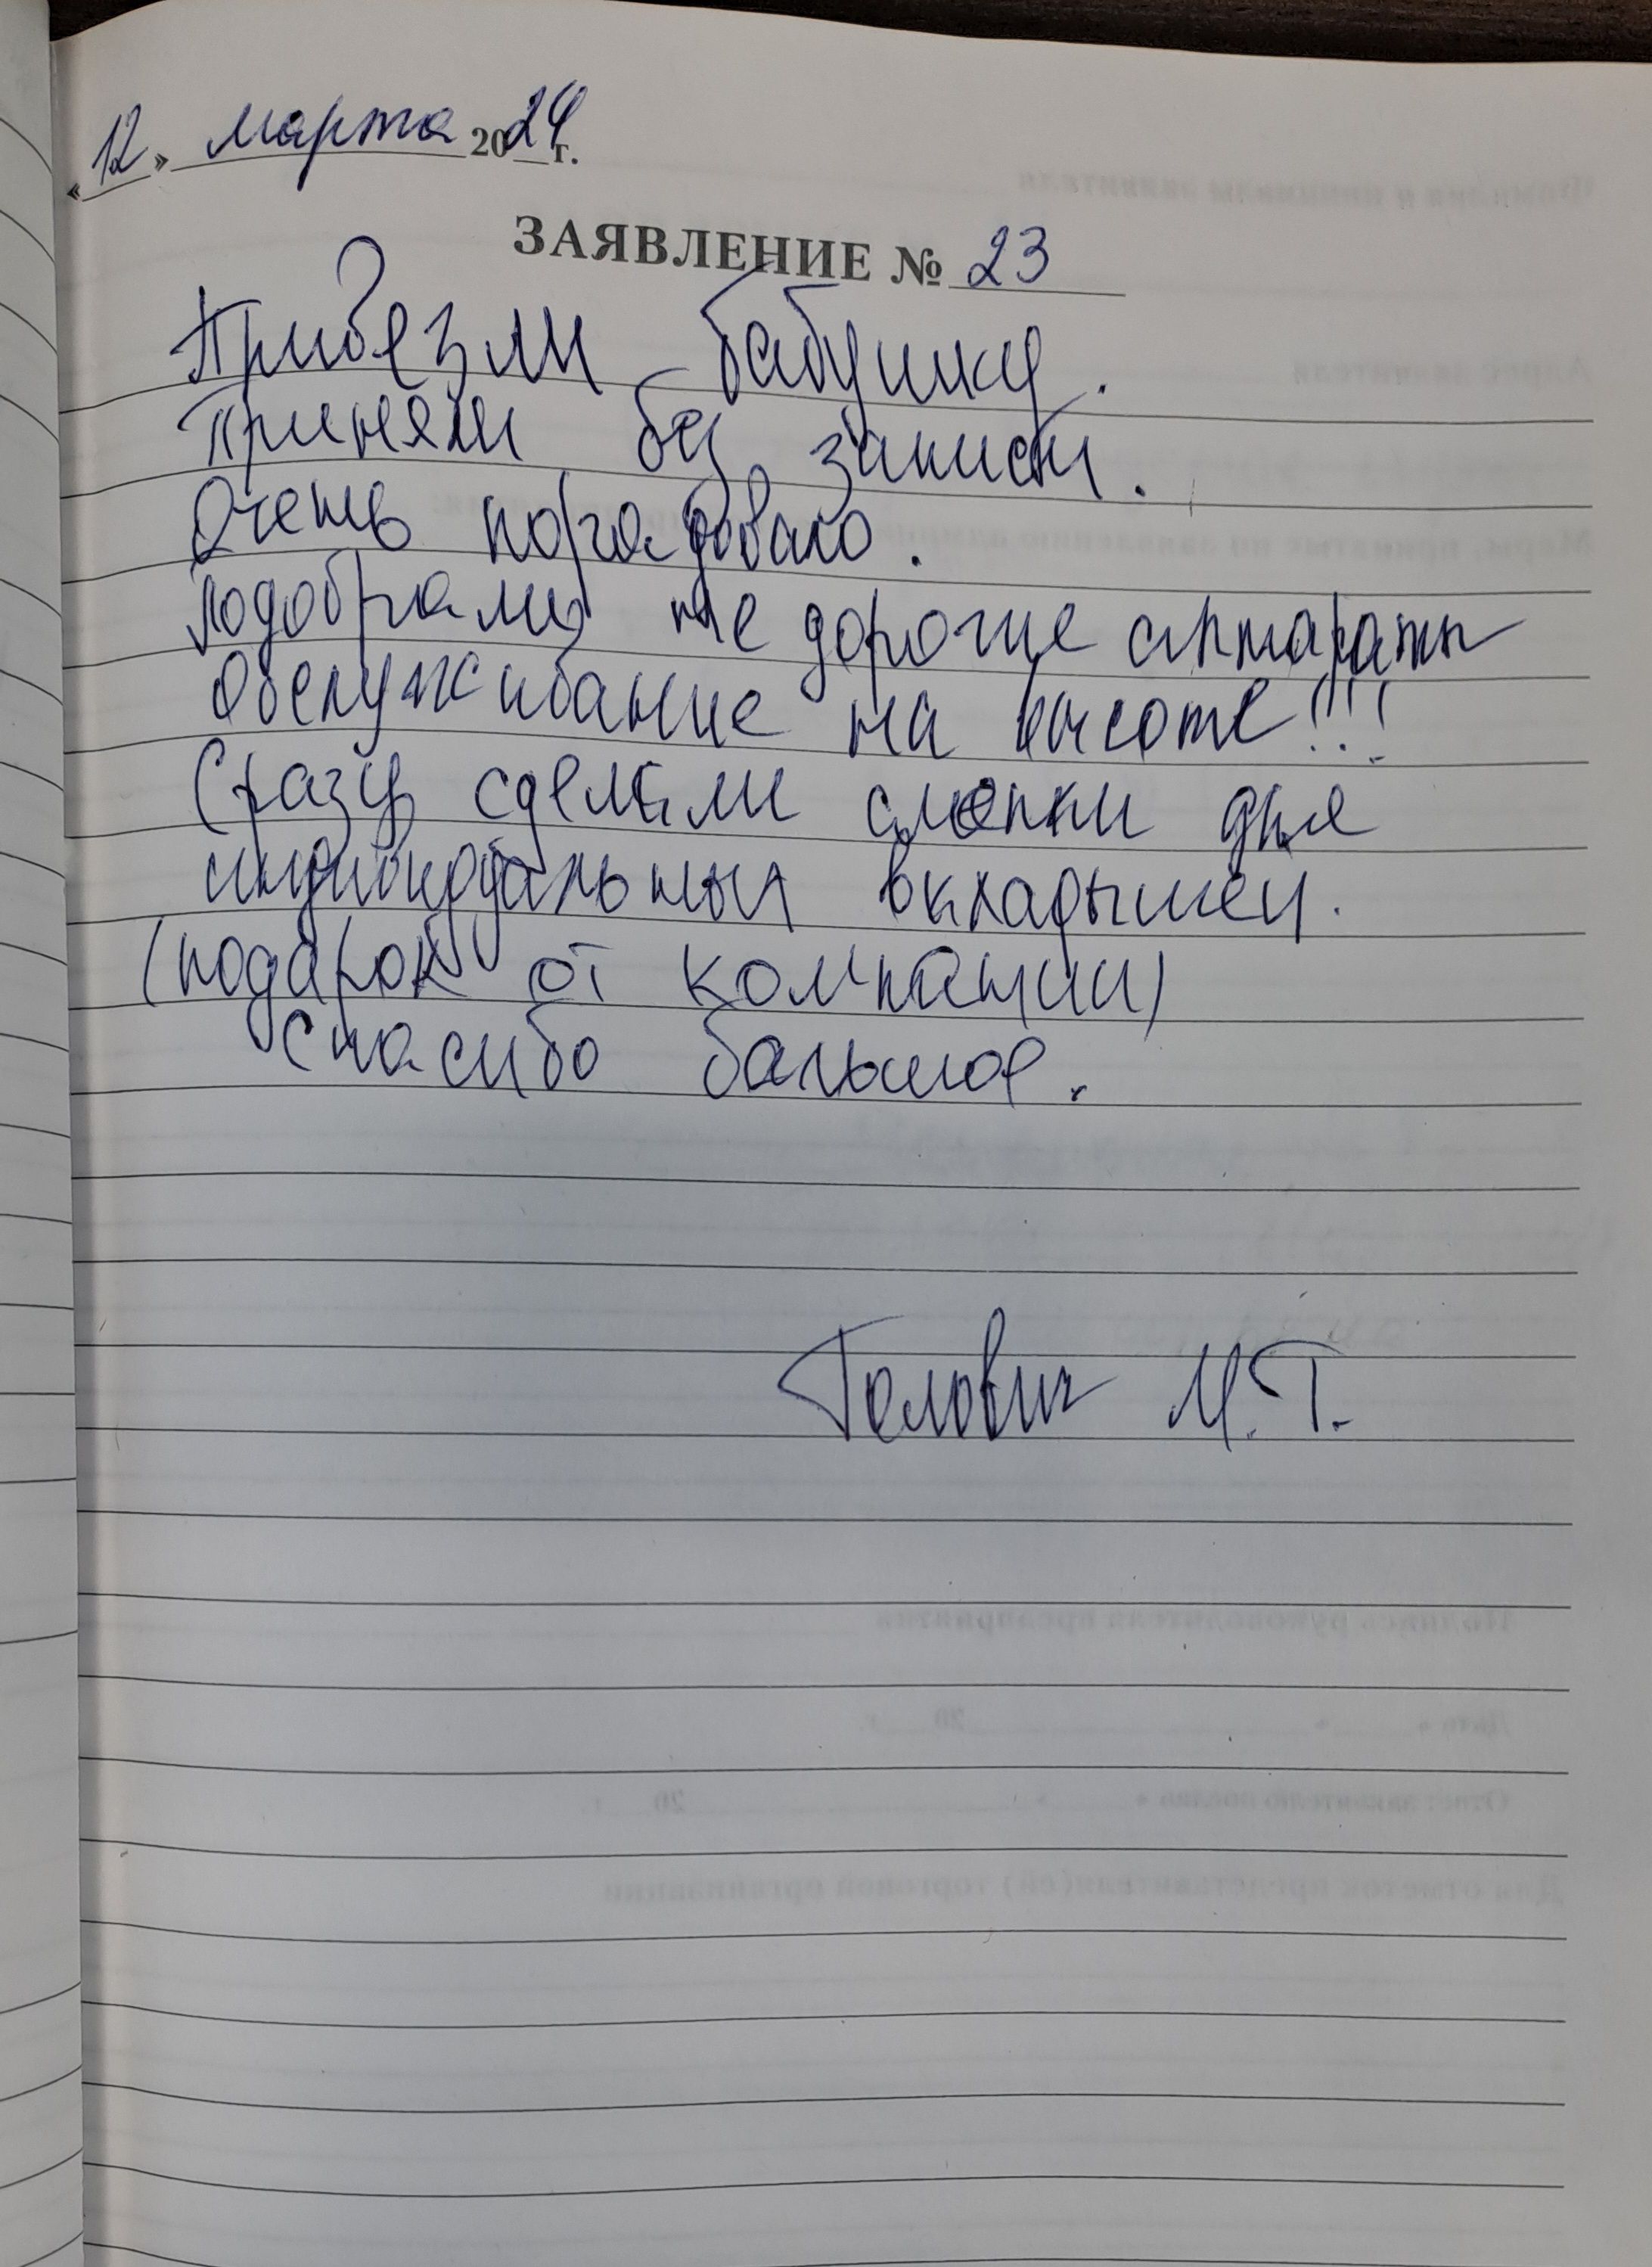 «12» марта 2024 г.
ЗАЯВЛЕНИЕ № 23
Привезли бабушку.
Приняли без записи.
Очень порадовало.
Подобрали не дорогие аппараты
Обслуживание на высоте!!!
Сразу сделали слепки для
индивидуальных вкладышей.
(подарок от компании)
Спасибо большое.
Гелович М.Г.